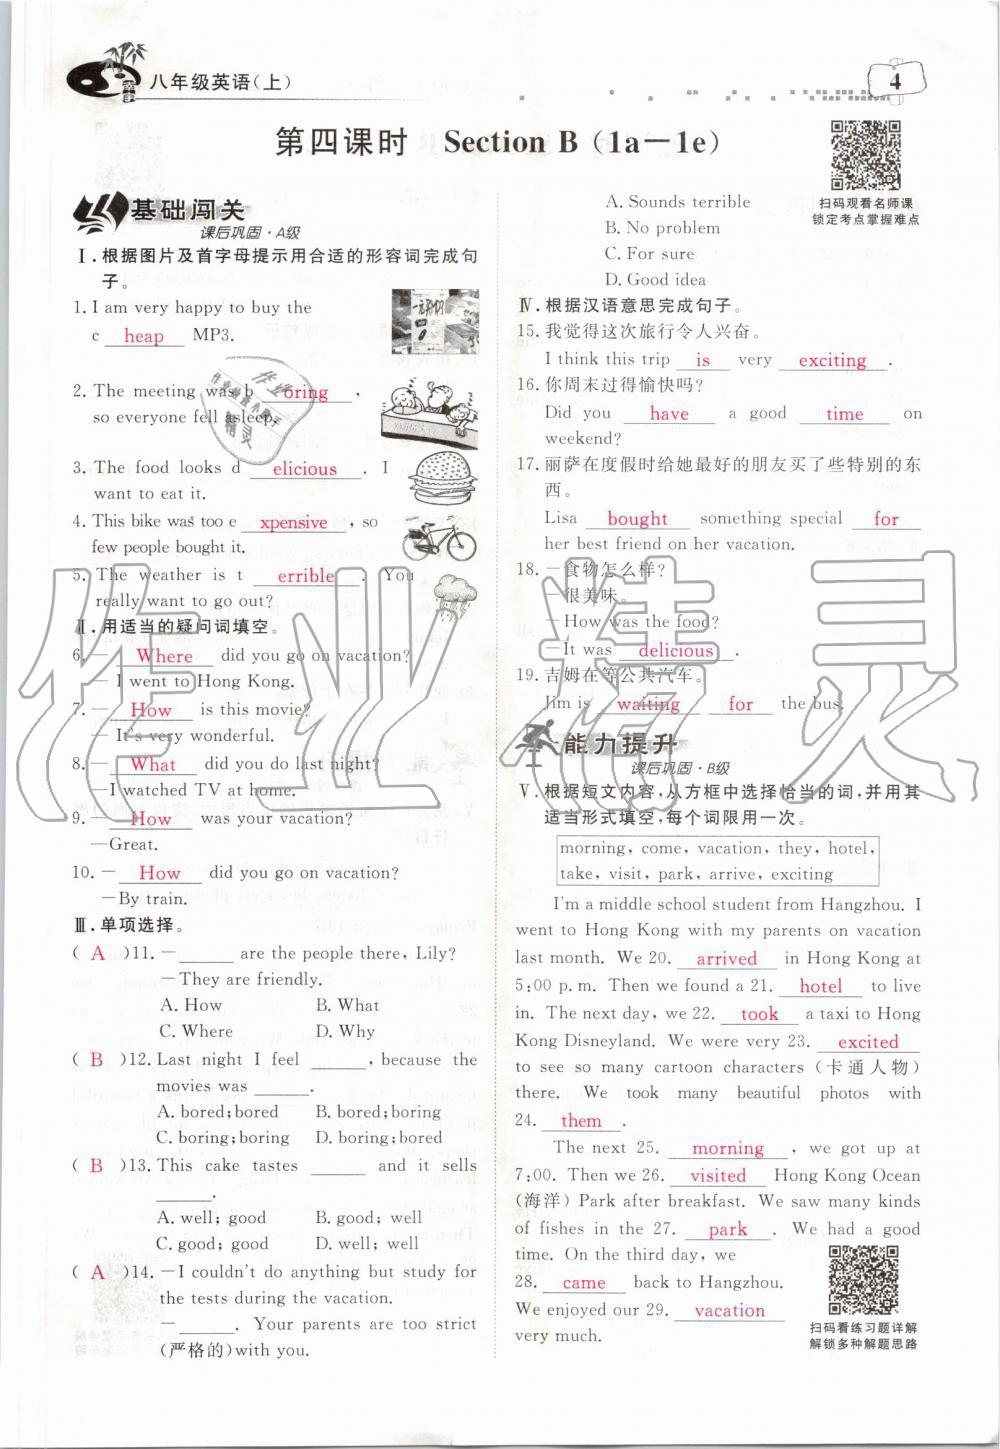 八年级英语(上)
4
第四课时 Section B (1a—1e)
扫码观看名师课
锁定考点掌握难点
基础闯关
课后巩固·A级
Ⅰ.根据图片及首字母提示用合适的形容词完成句
子。
1. I am very happy to buy the
c heap MP3.
2. The meeting was b oring ,
so everyone fell asleep.
3. The food looks d elicious . I
want to eat it.
4. This bike was too e xpensive , so
few people bought it.
5. The weather is t errible . You
really want to go out?
Ⅱ.用适当的疑问词填空。
6. — Where did you go on vacation?
— I went to Hong Kong.
7. — How is this movie?
— It's very wonderful.
8. — What did you do last night?
—I watched TV at home.
9. — How was your vacation?
—Great.
10. — How did you go on vacation?
—By train.
Ⅲ.单项选择。
( A )11. —______ are the people there, Lily?
—They are friendly.
A. How B. What
C. Where D. Why
( B )12. Last night I feel ______, because the
movies was ______.
A. bored;bored B. bored;boring
C. boring;boring D. boring;bored
( B )13. This cake tastes ______ and it sells
______.
A. well; good B. good; well
C. good; good D. well; well
( A )14. —I couldn't do anything but study for
the tests during the vacation.
—______. Your parents are too strict
(严格的)with you.
A. Sounds terrible
B. No problem
C. For sure
D. Good idea
Ⅳ.根据汉语意思完成句子。
15. 我觉得这次旅行令人兴奋。
I think this trip is very exciting .
16. 你周末过得愉快吗?
Did you have a good time on
weekend?
17. 丽萨在度假时给她最好的朋友买了些特别的东
西。
Lisa bought something special for
her best friend on her vacation.
18. —食物怎么样?
—很美味。
—How was the food?
—It was delicious .
19. 吉姆在等公共汽车。
Jim is waiting for the bus.
能力提升
课后巩固·B级
Ⅴ.根据短文内容,从方框中选择恰当的词,并用其
适当形式填空,每个词限用一次。
morning, come, vacation, they, hotel,
take, visit, park, arrive, exciting
I'm a middle school student from Hangzhou. I
went to Hong Kong with my parents on vacation
last month. We 20. arrived in Hong Kong at
5:00 p. m. Then we found a 21. hotel to live
in. The next day, we 22. took a taxi to Hong
Kong Disneyland. We were very 23. excited
to see so many cartoon characters (卡通人物)
there. We took many beautiful photos with
24. them .
The next 25. morning , we got up at
7:00. Then we 26. visited Hong Kong Ocean
(海洋) Park after breakfast. We saw many kinds
of fishes in the 27. park . We had a good
time. On the third day, we
28. came back to Hangzhou.
We enjoyed our 29. vacation
very much.
扫码看练习题详解
解锁多种解题思路
作业精灵